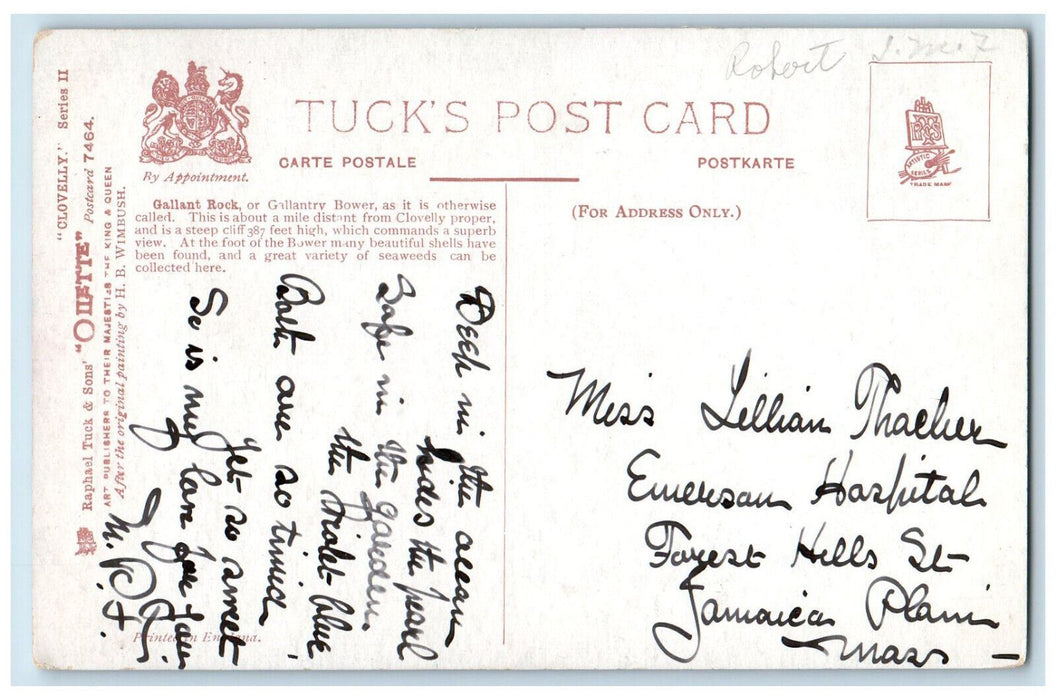 Robert J. M. F
TUCK'S POST CARD
CARTE POSTALE
POSTKARTE
By Appointment.
(FOR ADDRESS ONLY.)
ARTISTIC
SERIES
TRADE MARK
Gallant Rock, or Gallantry Bower, as it is otherwise
called. This is about a mile distant from Clovelly proper,
and is a steep cliff 387 feet high, which commands a superb
view. At the foot of the Bower many beautiful shells have
been found, and a great variety of seaweeds can be
collected here.
"CLOVELLY." Series II
Raphael Tuck & Sons' "OILETTE" Postcard 7464.
ART PUBLISHERS TO THEIR MAJESTIES THE KING & QUEEN
After the original painting by H. B. WIMBUSH.
Deep in the ocean
hides the pearl
Safe in the garden
the violet blue
Both are so timid
Yet so sweet
So is my love for you
M. R. F.
Miss Lillian Thacher
Emerson Hospital
Forest Hills St
Jamaica Plain
Mass –
Printed in England.